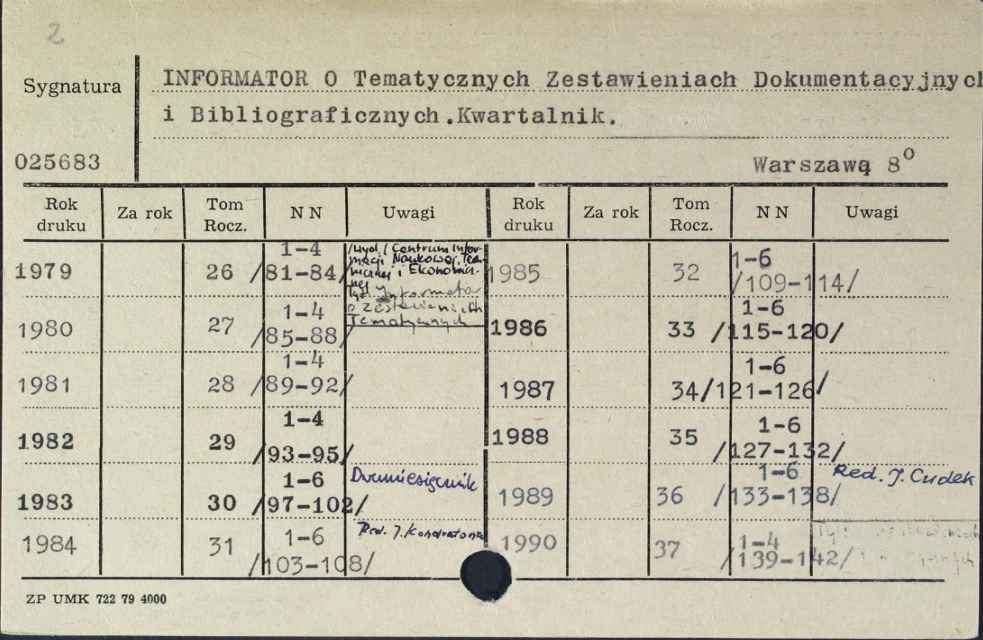 2
Sygnatura
INFORMATOR O Tematycznych Zestawieniach Dokumentacyjnych
i Bibliograficznych.Kwartalnik.
025683
Warszawą 8°
Rok druku Za rok Tom Rocz. N N Uwagi Rok druku Za rok Tom Rocz. N N Uwagi
1979 26 1-4 /81-84/ /Wyd./ Centrum Infor-
macji Naukowej, Tech-
nicznej i Ekonomicz-
nej
Tyt. Informator
o Zestawieniach
Tematycznych
1980 27 1-4 /85-88/
1981 28 /89-92/ 1-4
1982 29 1-4 /93-95/
1983 30 1-6 /97-102/ Dwumiesięcznik
1984 31 1-6 /103-108/ Red. J.
1985 32 1-6 /109-114/
1986 33 1-6 /115-120/
1987 34 1-6 /121-126/
1988 35 1-6 /127-132/
1989 36 1-6 /133-138/ Red. J. Cudek
1990 37 1-4 /139-142/
ZP UMK 722 79 4000